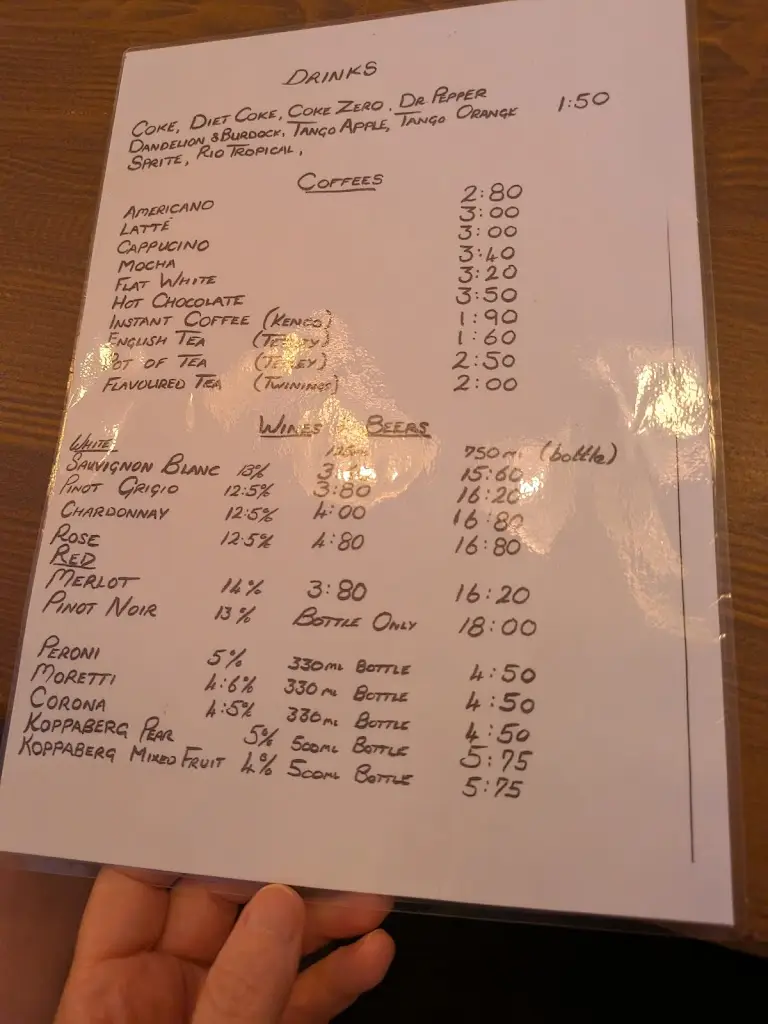 DRINKS
COKE, DIET COKE, COKE ZERO, DR PEPPER 1:50
DANDELION & BURDOCK, TANGO APPLE, TANGO ORANGE
SPRITE, RIO TROPICAL,
COFFEES
AMERICANO 2:80
LATTE 3:00
CAPPUCINO 3:00
MOCHA 3:40
FLAT WHITE 3:20
HOT CHOCOLATE 3:50
INSTANT COFFEE (KENCO) 1:90
ENGLISH TEA (TETLEY) 1:60
POT OF TEA (TETLEY) 2:50
FLAVOURED TEA (TWININGS) 2:00
WINES + BEERS
WHITE 125ml 750ml (bottle)
SAUVIGNON BLANC 13% 15:60
PINOT GRIGIO 12:5% 3:80 16:20
CHARDONNAY 12:5% 4:00 16:80
ROSE 12:5% 4:80 16:80
RED
MERLOT 14% 3:80 16:20
PINOT NOIR 13% BOTTLE ONLY 18:00
PERONI 5% 330ML BOTTLE 4:50
MORETTI 4:6% 330ML BOTTLE 4:50
CORONA 4:5% 330ML BOTTLE 4:50
KOPPABERG PEAR 5% 500ML BOTTLE 5:75
KOPPABERG MIXED FRUIT 4% 500ML BOTTLE 5:75